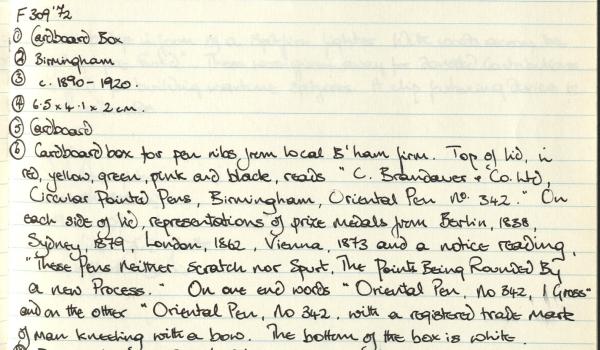 F309'72
① Cardboard Box
② Birmingham
③ c. 1890-1920.
④ 6.5 x 4.1 x 2 cm.
⑤ Cardboard
⑥ Cardboard box for pen nibs from local B'ham firm. Top of lid, in
red, yellow, green, pink and black, reads "C. Brandauer & Co. Ltd,
Circular Pointed Pens, Birmingham, Oriental Pen no. 342." On
each side of lid, representations of prize medals from Berlin, 1838,
Sydney, 1879, London, 1862, Vienna, 1873 and a notice reading,
"These Pens Neither Scratch nor Spurt, The Points Being Rounded By
a new Process." On one end words "Oriental Pen, No 342, 1 Gross"
and on the other "Oriental Pen, No 342, with a registered trade mark
of man kneeling with a bow. The bottom of the box is white.